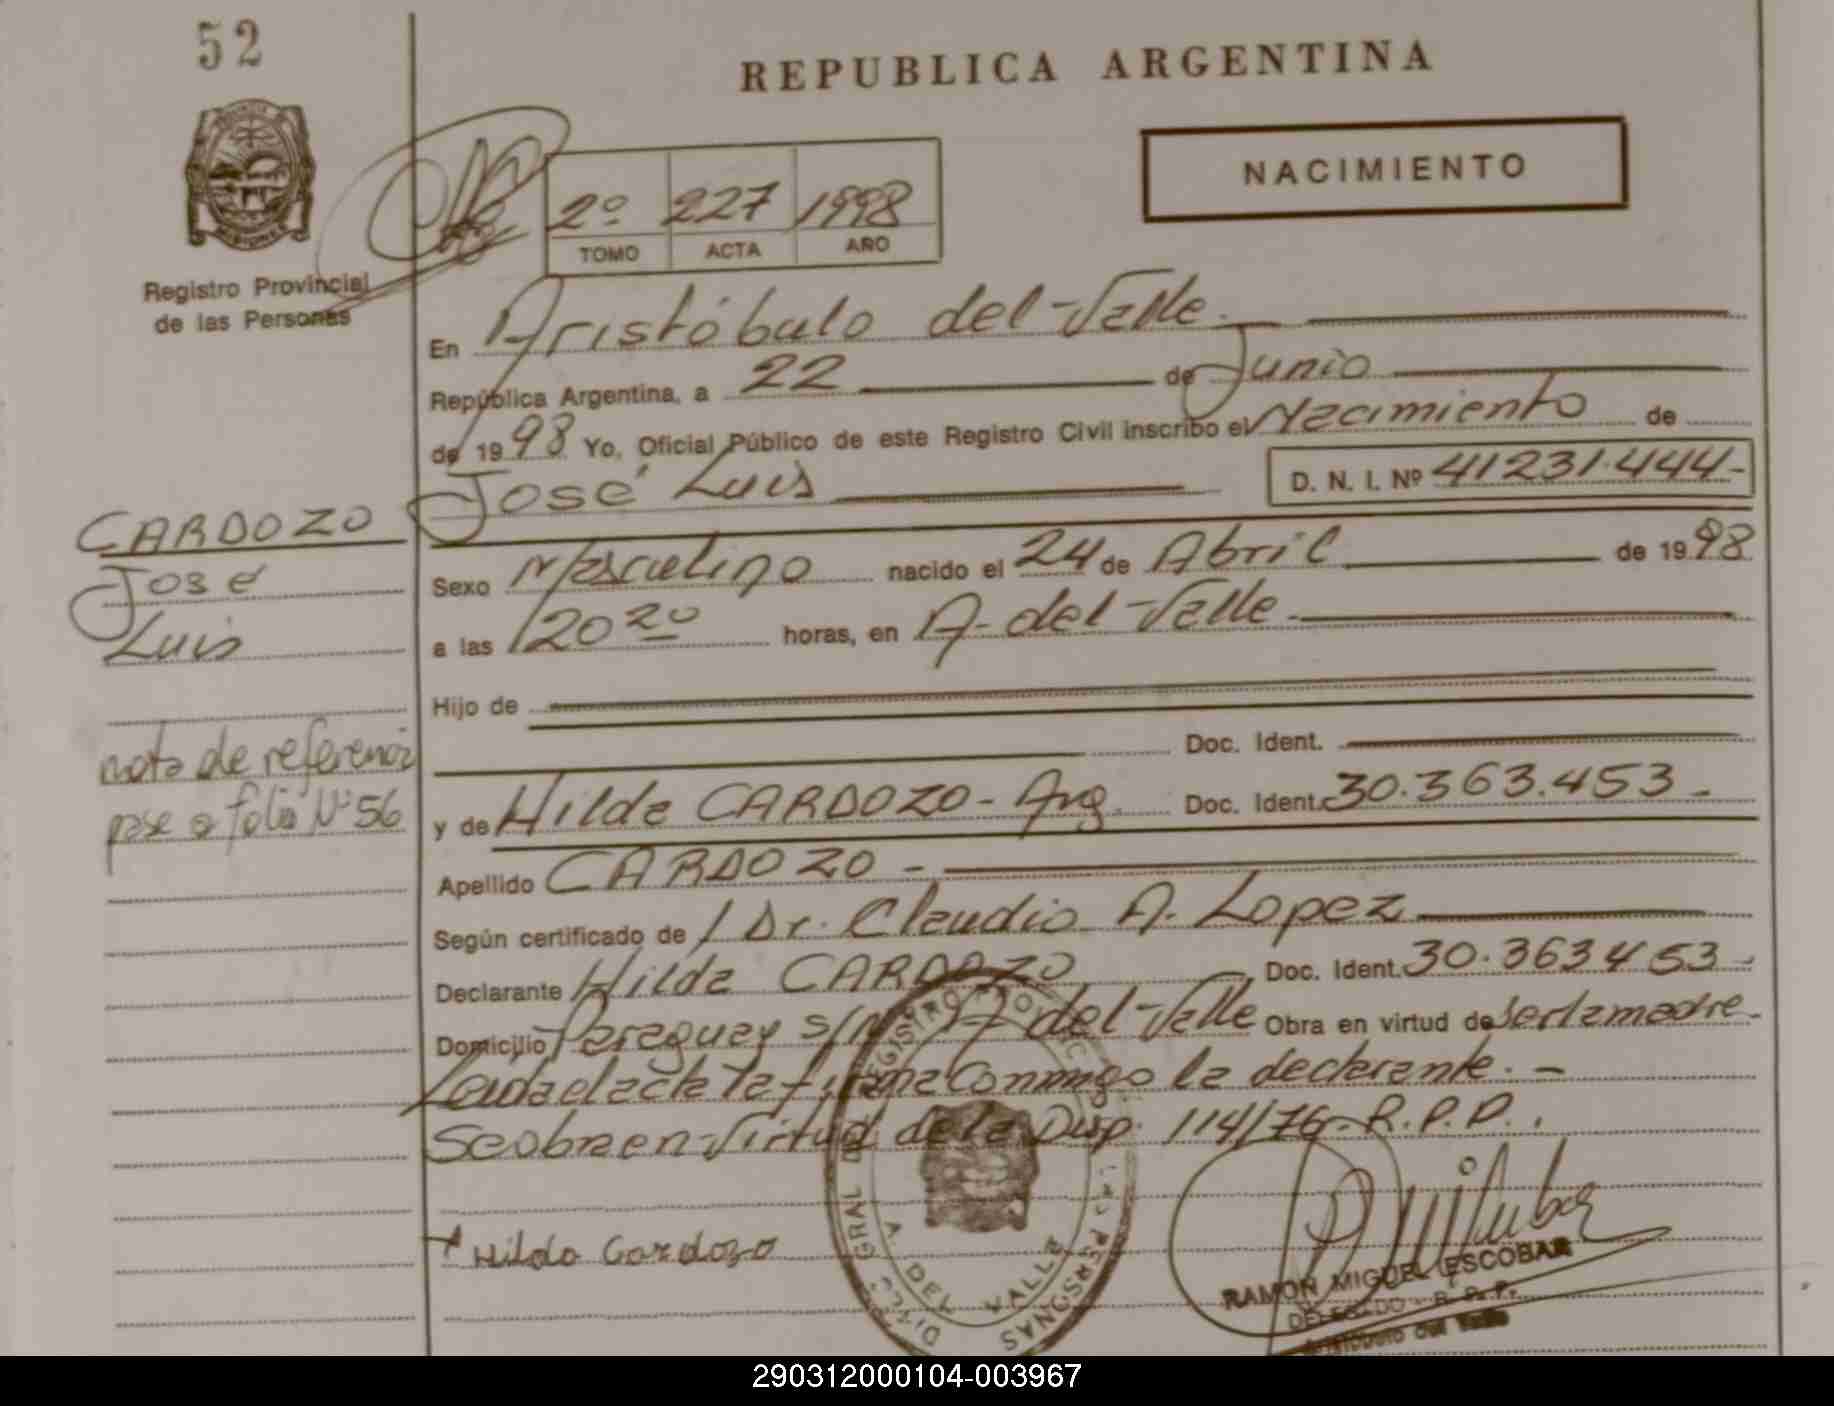 52
REPUBLICA ARGENTINA
NACIMIENTO
2º 227 1998
TOMO ACTA AÑO
MISIONES
Registro Provincial
de las Personas
En Aristóbulo del Valle.
República Argentina, a 22 de Junio
de 1998 Yo, Oficial Público de este Registro Civil inscribo el Nacimiento de
José Luis D. N. I. Nº 41231.444-
CARDOZO
José
Luis
Sexo Masculino nacido el 24 de Abril de 1998
a las 20 20 horas, en A. del Valle.
Hijo de
Doc. Ident.
nota de referencia
pase a folio Nº 56
y de Hilda CARDOZO - Arg. Doc. Ident. 30.363.453 -
Apellido CARDOZO -
Según certificado de Dr. Claudio A. Lopez
Declarante Hilda CARDOZO Doc. Ident. 30.363453-
Domicilio Paraguay s/n A. del Valle Obra en virtud de ser la madre.
Leida el acta la firma Conmigo la declarante. -
Se obra en Virtud de la Disp. 114/76- R.P.P..
Hilda Cardozo
A DEL VALLE
RAMON MIGUEL ESCOBAR
DELEGADO - R. P. P.
Aristobulo del Valle
290312000104-003967